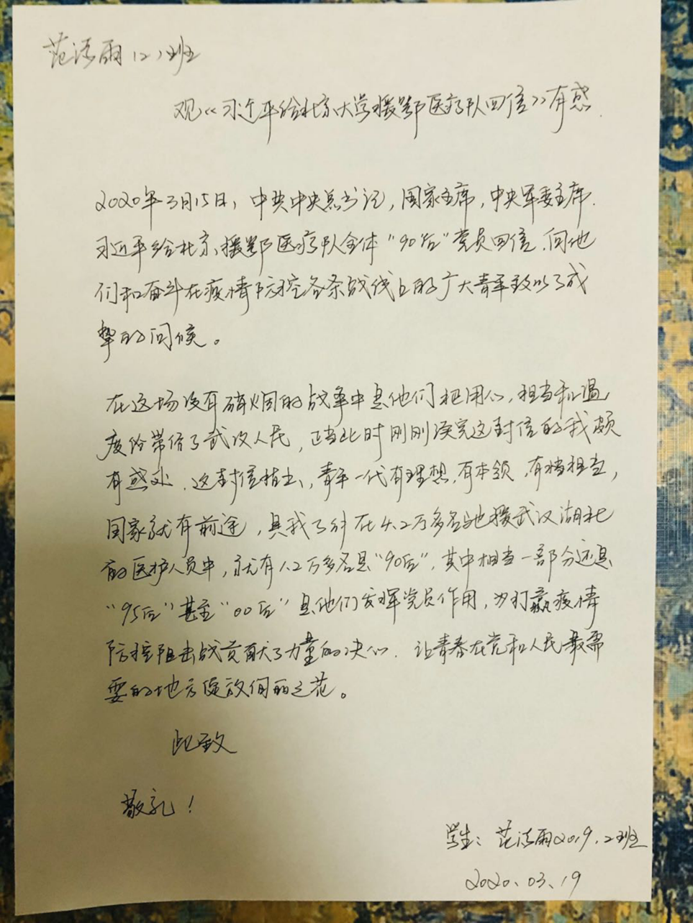 范洁雨12.2班
观《习近平给北京大学援鄂医疗队回信》有感.
2020年3月15日,中共中央总书记,国家主席,中央军委主席.
习近平给北京援鄂医疗队全体"90后"党员回信.向他
们和奋斗在疫情防控各条战线上的广大青年致以了诚
挚的问候。
在这场没有硝烟的战争中是他们把用心,担当和温
度给带给了武汉人民,正当此时刚刚读完这封信的我颇
有感处.这封信指出,青年一代有理想,有本领,有担当,
国家就有前途,具我了解在4.2万多名驰援武汉湖北
的医护人员中,就有1.2万多名是"90后",其中相当一部分还是
"95后"甚至"00后"是他们发挥党员作用,为打赢疫情
防控阻击战贡献了力量的决心.让青春在党和人民最需
要的地方绽放绚丽之花。
此致
敬礼!
学生:范洁雨2019.2班
2020.03.19